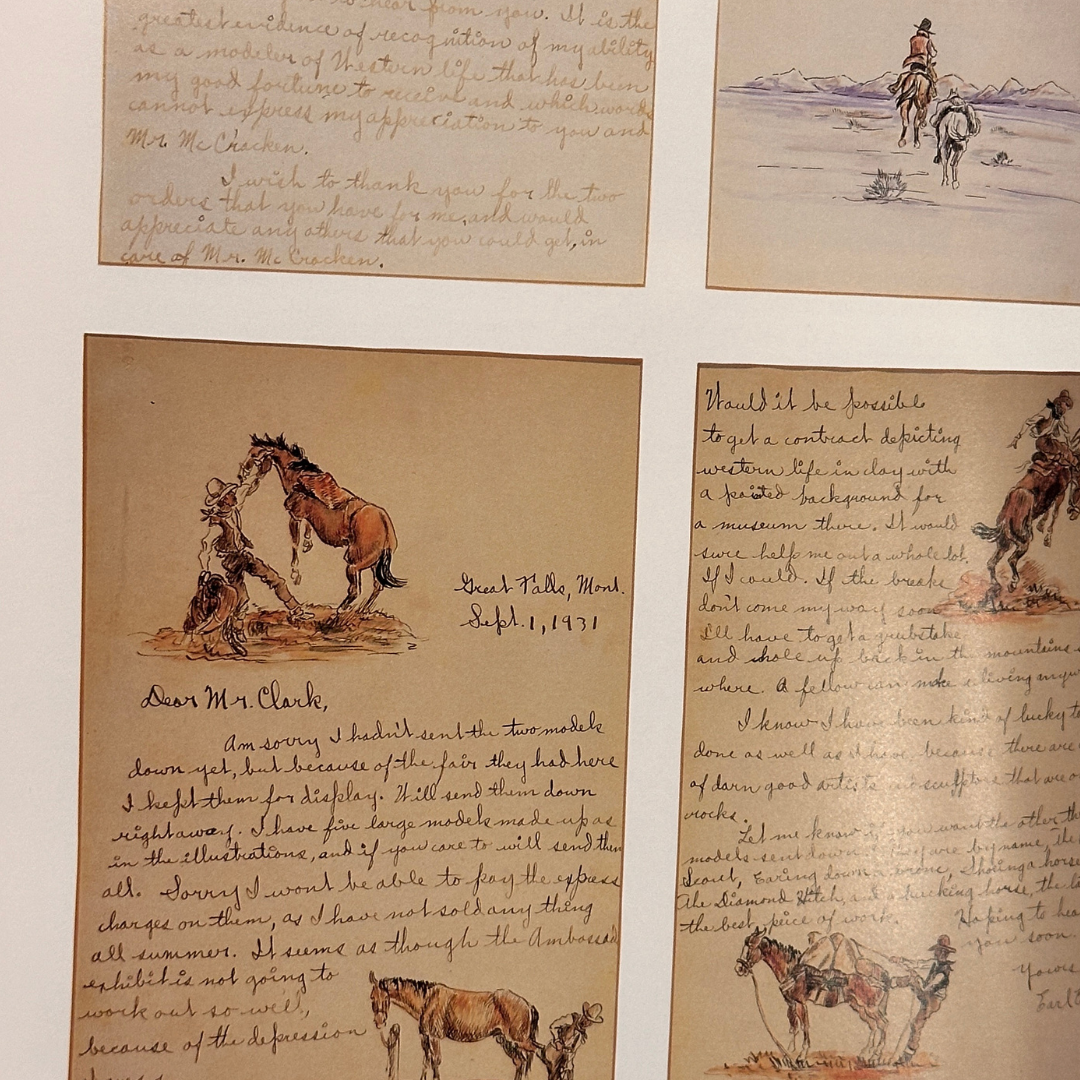 to hear from you. It is the
greatest evidence of recognition of my ability
as a modeler of Western life that has been
my good fortune to receive and which words
cannot express my appreciation to you and
Mr. McCracken.
I wish to thank you for the two
orders that you have for me, and would
appreciate any others that you could get, in
care of Mr. McCracken.
Great Falls, Mont.
Sept. 1, 1931
Dear Mr. Clark,
Am sorry I hadn't sent the two models
down yet, but because of the fair they had here
I kept them for display. Will send them down
right away. I have five large models made up as
in the illustrations, and if you care to will send them
all. Sorry I wont be able to pay the express
charges on them, as I have not sold any thing
all summer. It seems as though the Ambassad
exhibit is not going to
work out so well,
because of the depression
Would it be possible
to get a contract depicting
western life in clay with
a painted background for
a museum there. It would
sure help me out a whole lot.
If I could. If the breaks
don't come my way soon
I'll have to get a grubstake
and hole up back in the mountains
where. A fellow can make a living anyw
I know I have been kind of lucky to
done as well as I have, because there are
of darn good artists and sculptors that are o
rocks.
Let me know if you want the other th
models sent down. They are by name, The
Scout, Earing down a bronc, Shoeing a horse
The Diamond Hitch, and a bucking horse, the la
the best piece of work.
Hoping to hea
you soon.
Yours
Earl